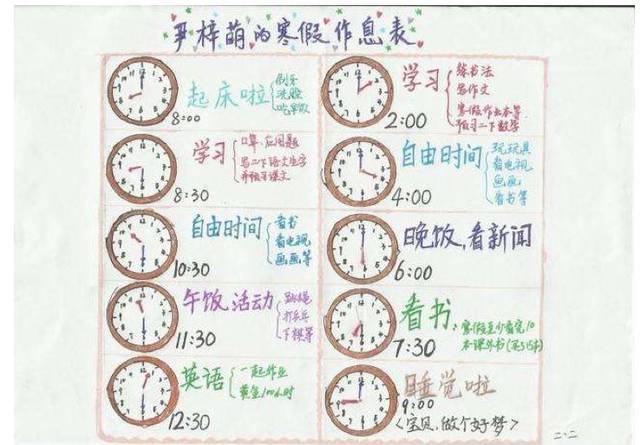 尹梓萌的寒假作息表
8:00
起床啦
刷牙
洗脸
吃早饭
8:30
学习
口算、应用题
写二下语文生字
并预习课文
10:30
自由时间
看书
看电视
画画等
11:30
午饭,活动
跳绳
打乒乓
下棋等
12:30
英语
一起作业
黄金100小时
2:00
学习
练书法
写作文
寒假作业本等
预习二下数学
4:00
自由时间
玩玩具
看电视
画画
看书等
6:00
晚饭,看新闻
7:30
看书
寒假至少看完10
本课外书
9:00
睡觉啦
<宝贝,做个好梦>
二·二